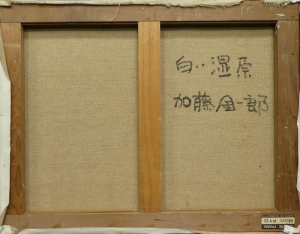 白い湿原
加藤金一郎